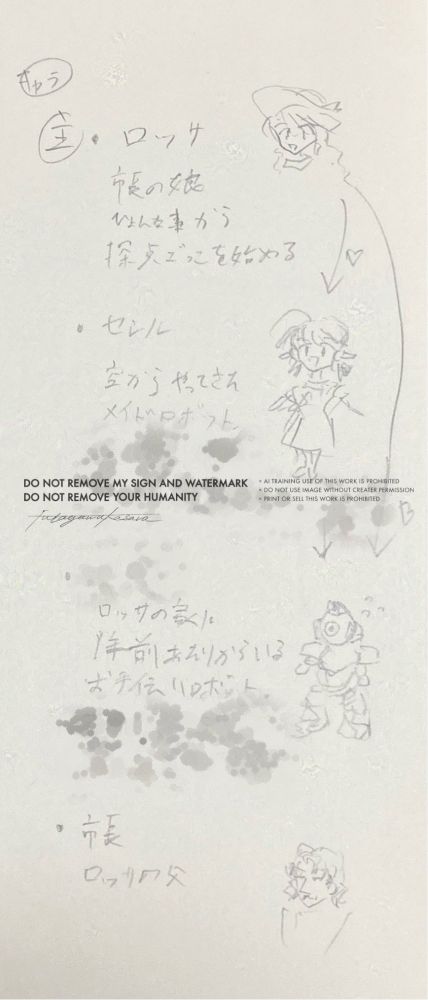 キャラ
主・ロッサ
市長の娘
ひょんな事から
探偵ごっこを始める
・セシル
空からやってきた
メイドロボット
DO NOT REMOVE MY SIGN AND WATERMARK
DO NOT REMOVE YOUR HUMANITY
• AI TRAINING USE OF THIS WORK IS PROHIBITED
• DO NOT USE IMAGE WITHOUT CREATER PERMISSION
• PRINT OR SELL THIS WORK IS PROHIBITED
ロッサの家に
年前あたりからいる
お手伝いロボット
・市長
ロッサの父